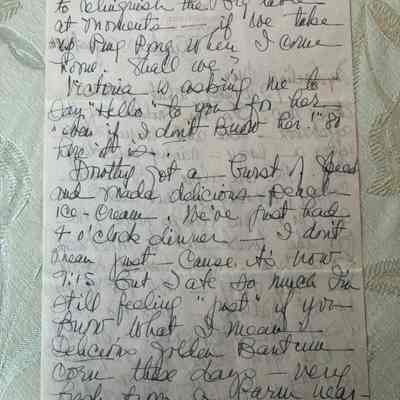 to relinquish the Ping
at moments — if we take
up Ping Pong when I come
home. Shall we?
Victoria is asking me to
say "Hello" to you — for her
"even if I don't know her!" So
here it is —
Dorothy got a burst of speed
and made delicious peach
ice-cream. We've just had
4 o'clock dinner — I don't
mean just — cause it's now
9:15 but I ate so much I'm
still feeling "just" if you
know what I mean —
Delicious Golden Bantum
corn these days — very
fresh from a farm near-